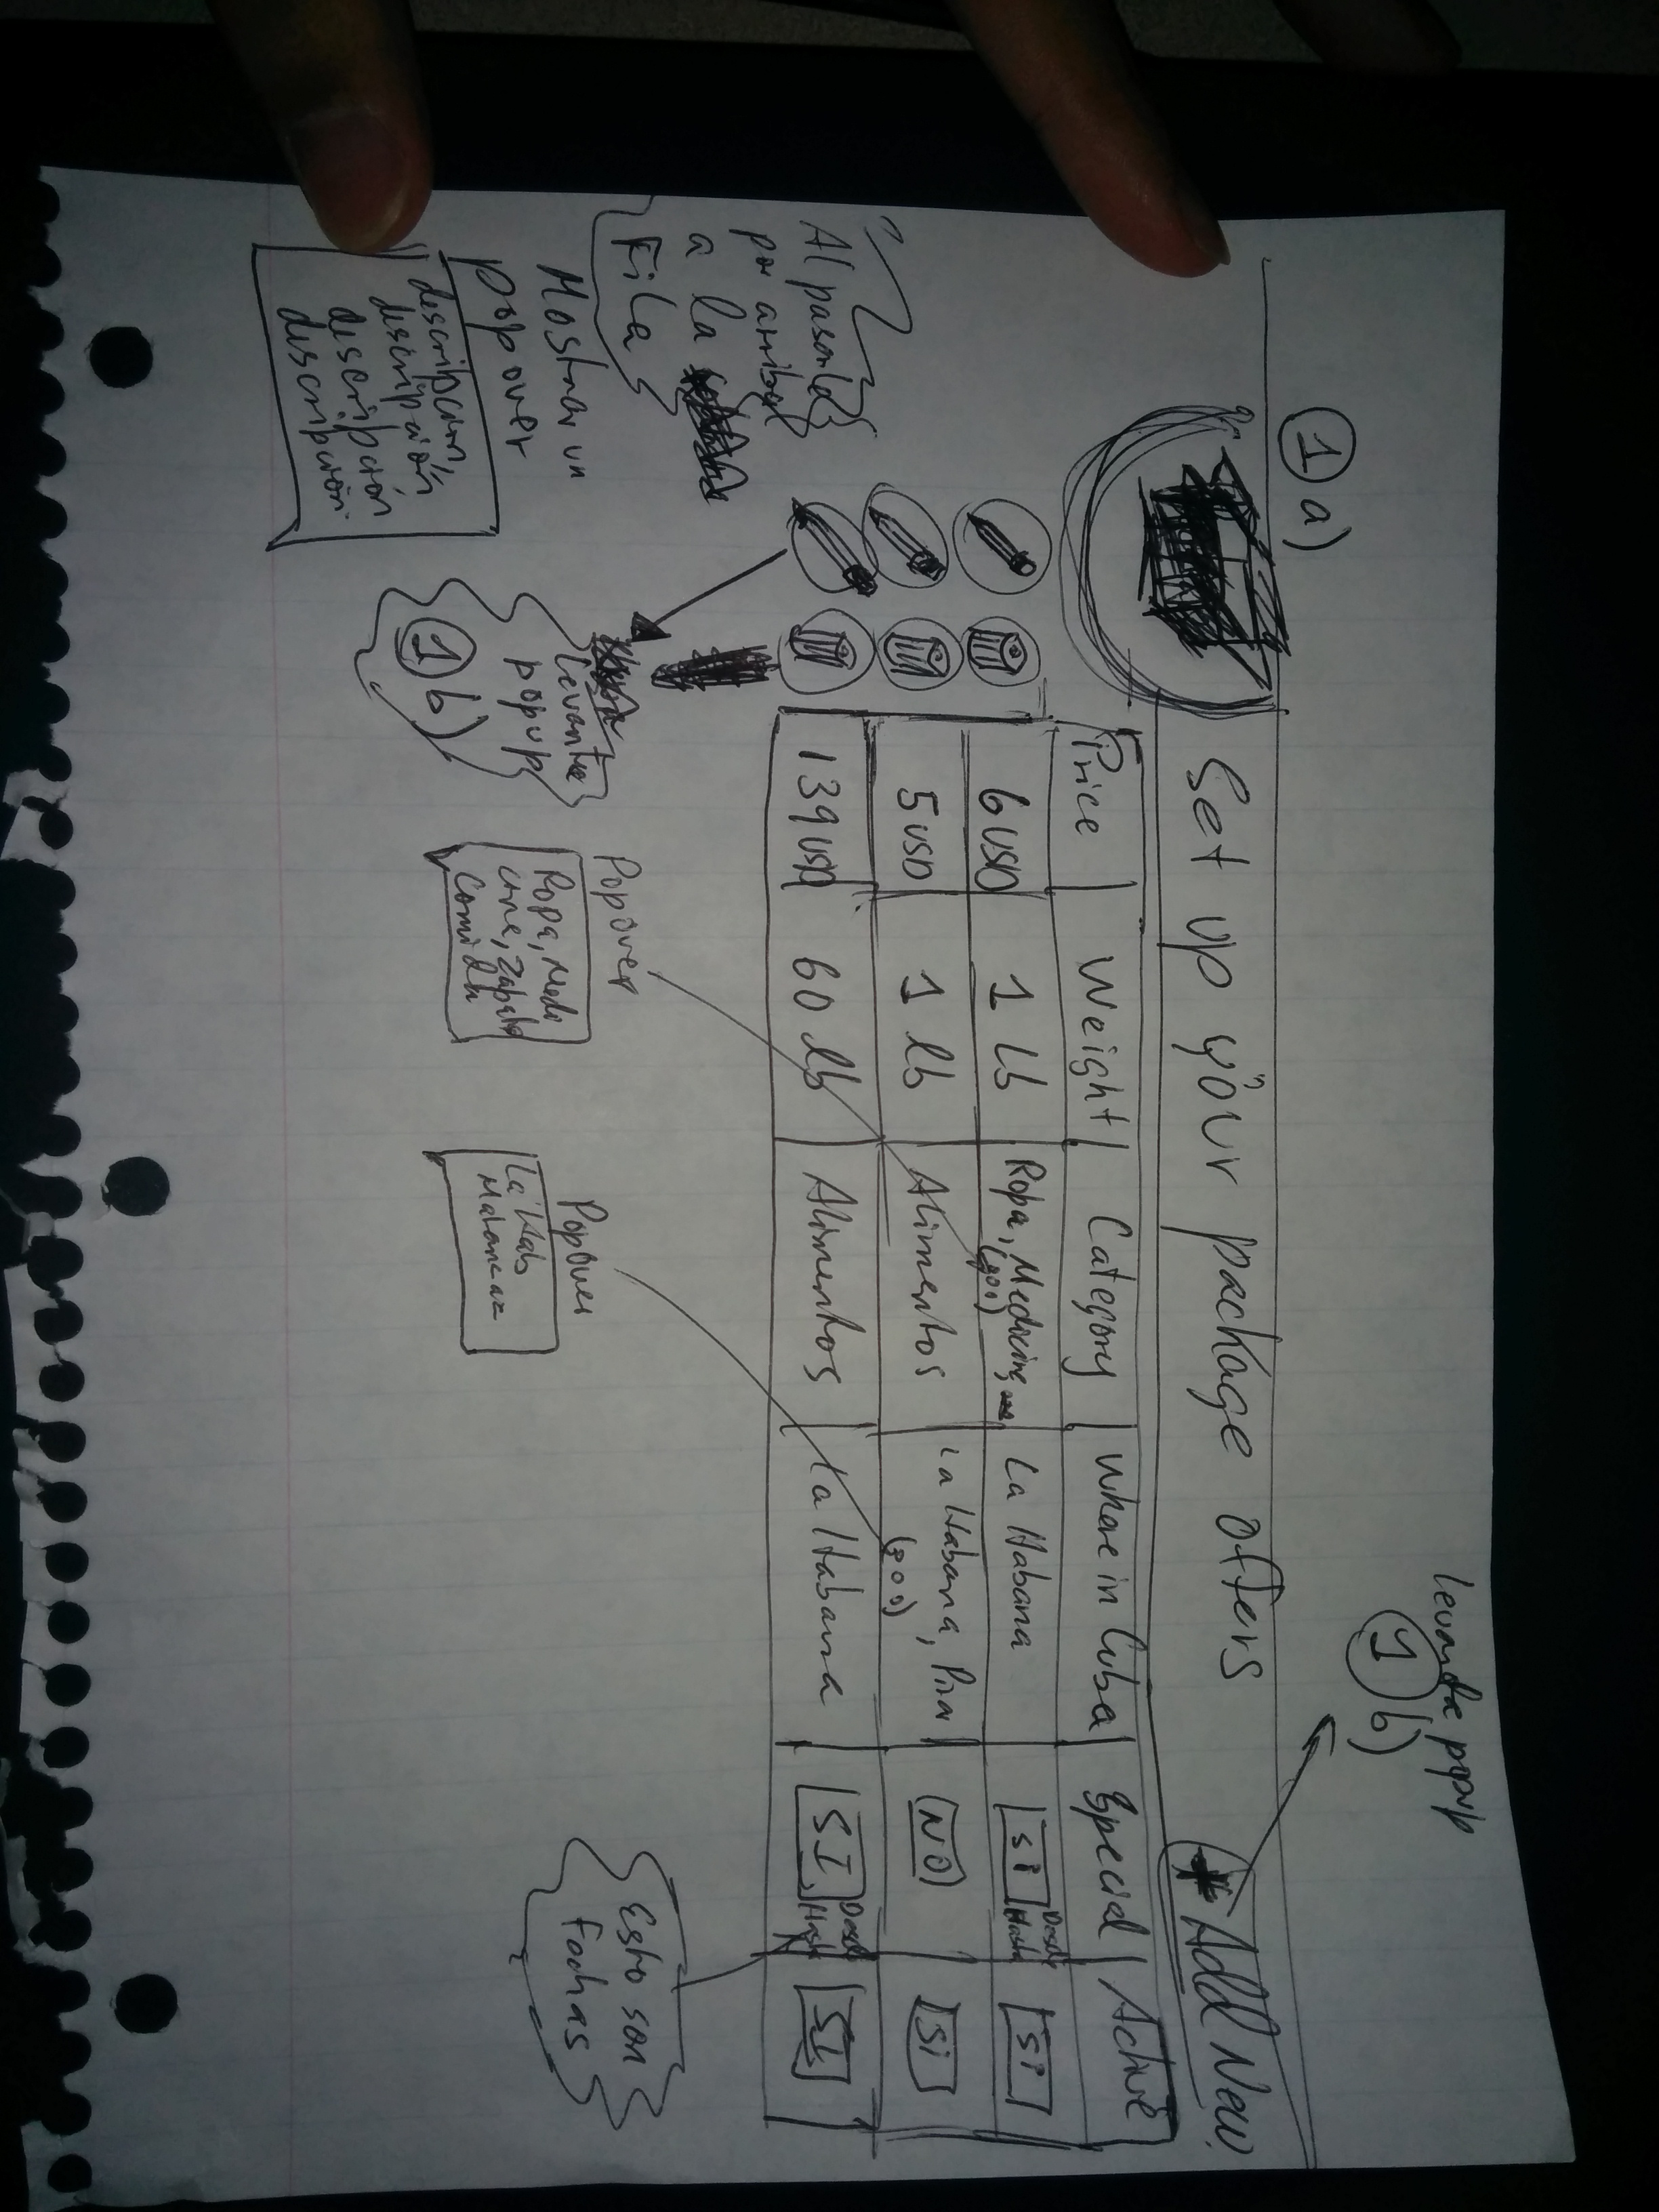 1 a)
levanta popup
1 b)
Set up your package offers
* Add New
Price Weight Category Where in Cuba Special Active
6 USD 1 Lb Ropa, Medicina La Habana SI Desde Hasta SI
(ooo)
5 USD 1 lb Alimentos La Habana, Pinar NO SI
(ooo)
139 USD 60 lb Alimentos La Habana SI Desde Hasta SI
Al pasar
por arriba
a la
Fila
Mostrar un
popover
descripción,
descripción
descripción
descripción
levanta
popup
1 b)
Popover
Ropa, Medi
cine, Zapato
Comida
Popover
La Hab
Matanzas
Esto son
Fechas